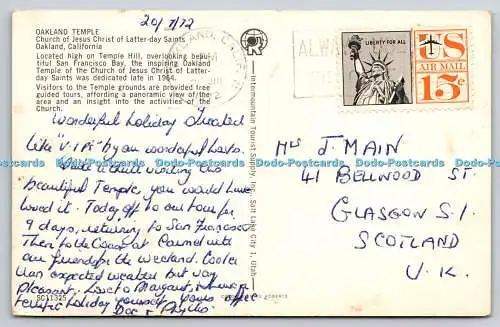 20/7/72
OAKLAND TEMPLE
Church of Jesus Christ of Latter-day Saints
Oakland, California
Located high on Temple Hill, overlooking beauti-
ful San Francisco Bay, the inspiring Oakland
Temple of the Church of Jesus Christ of Latter-
day Saints was dedicated late in 1964.
Visitors to the Temple grounds are provided free
guided tours, affording a panoramic view of the
area and an insight into the activities of the
Church.
Wonderful holiday treated
like "V.I.P." by our wonderful hosts.
Quite a thrill visiting this
beautiful Temple, you would have
loved it. Today off to our tour for
9 days, returning to San Francisco
Then to the Coast at Carmel with
our friends for the weekend. Cooler
than expected weather but very
pleasant. Love to Margaret,
terrific holiday yourself. Yours affec
Doc & Phyllis
SC11325
Intermountain Tourist Supply, Inc., Salt Lake City 1, Utah
ROBERTS
OAKLAND, CALIF
ALWAYS
LIBERTY FOR ALL
US
AIR MAIL
15c
Mrs J. MAIN
41 BELLWOOD ST.
GLASGOW S.1.
SCOTLAND
U.K.
www.Postcards-Updates.co.uk